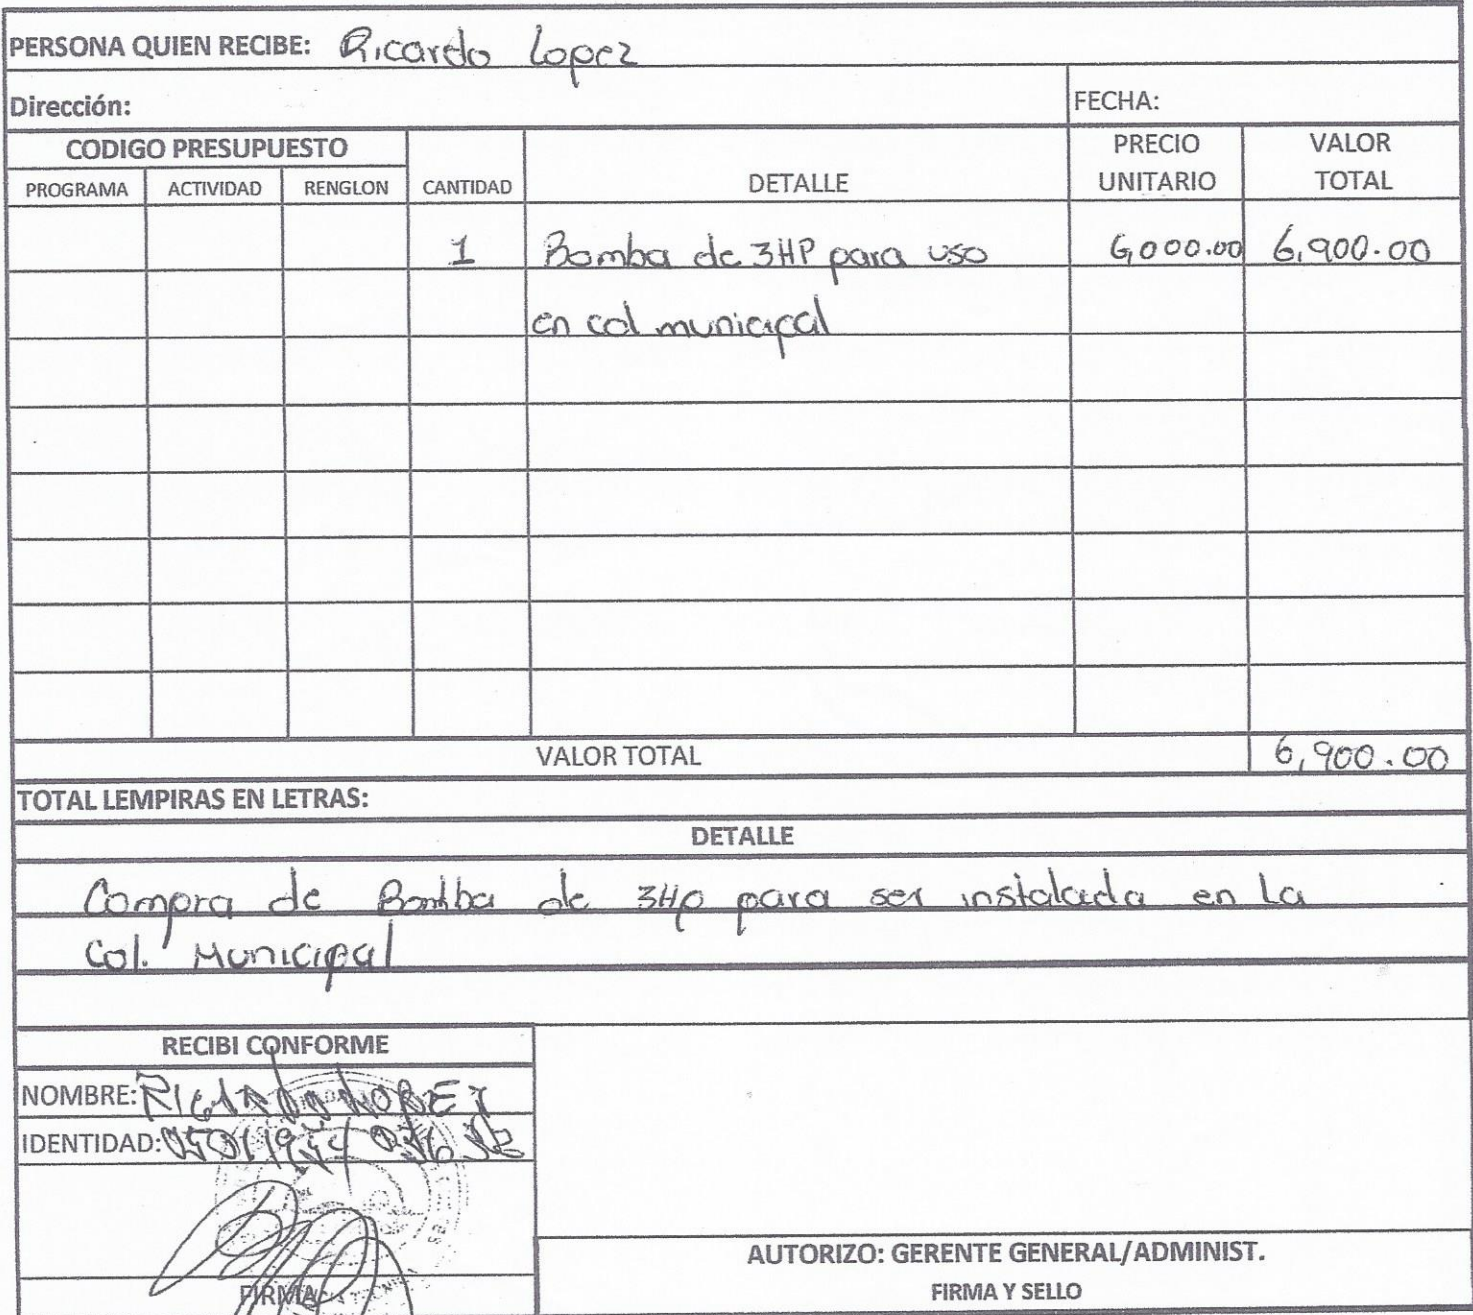 PERSONA QUIEN RECIBE: Ricardo Lopez
Dirección: FECHA:
CODIGO PRESUPUESTO
PROGRAMA ACTIVIDAD RENGLON CANTIDAD DETALLE PRECIO UNITARIO VALOR TOTAL
1 Bomba de 3HP para uso 6,000.00 6,900.00
en col municipal
VALOR TOTAL 6,900.00
TOTAL LEMPIRAS EN LETRAS:
DETALLE
Compra de Bomba de 3Hp para ser instalada en La
Col. Municipal
RECIBI CONFORME
NOMBRE: RICARDO LOPEZ
IDENTIDAD:
FIRMA
AUTORIZO: GERENTE GENERAL/ADMINIST.
FIRMA Y SELLO